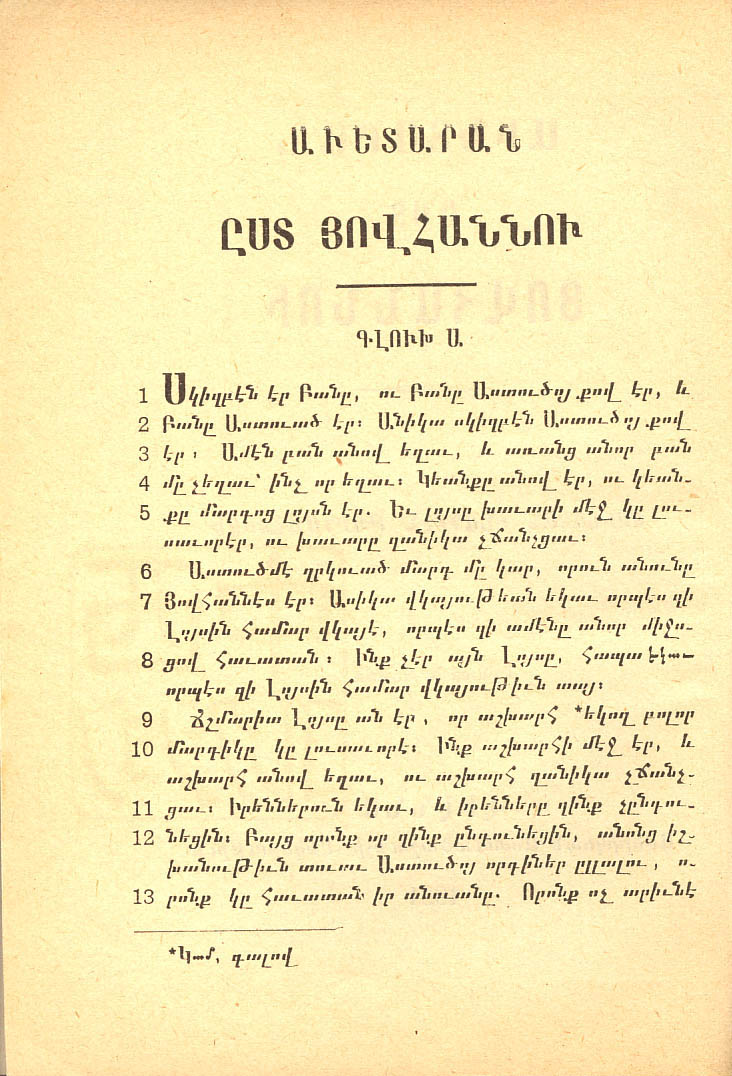 ԱՒԵՏԱՐԱՆ
ԸՍՏ ՅՈՎՀԱՆՆՈՒ
ԳԼՈՒԽ Ա
1 Սկիզբէն էր Բանը, ու Բանը Աստուծոյ քով էր, և
2 Բանը Աստուած էր։ Անիկա սկիզբէն Աստուծոյ քով
3 էր։ Ամէն բան անով եղաւ, և առանց անոր բան
4 մը չեղաւ՝ ինչ որ եղաւ։ Կեանքը անով էր, ու կեան-
5 քը մարդոց լոյսն էր. Եւ լոյսը խաւարի մէջ կը լու-
սաւորէր, ու խաւարը զանիկա չՃանչցաւ։
6 Աստուծմէ ղրկուած մարդ մը կար, որուն անունը
7 Յովհաննէս էր։ Ասիկա վկայութեան եկաւ որպէս զի
Լոյսին համար վկայէ, որպէս զի ամէնը անոր միջո-
8 ցով հաւատան։ Ինք չէր այն Լոյսը, հապա եկաւ
որպէս զի Լոյսին համար վկայութիւն տայ։
9 Ճշմարիտ Լոյսը ան էր, որ աշխարհ *եկող բոլոր
10 մարդիկը կը լուսաւորէ։ Ինք աշխարհի մէջ էր, և
աշխարհ անով եղաւ, ու աշխարհ զանիկա չճանչ-
11 ցաւ։ Իրեններուն եկաւ, և իրենները զինք չընդու-
12 նեցին։ Բայց որոնք որ զինք ընդունեցին, անոնց իշ-
խանութիւն տուաւ Աստուծոյ որդիներ ըլլալու, ո-
13 րոնք կը հաւատան իր անուանը. Որոնք ոչ արիւնէ
*Կամ, գալով